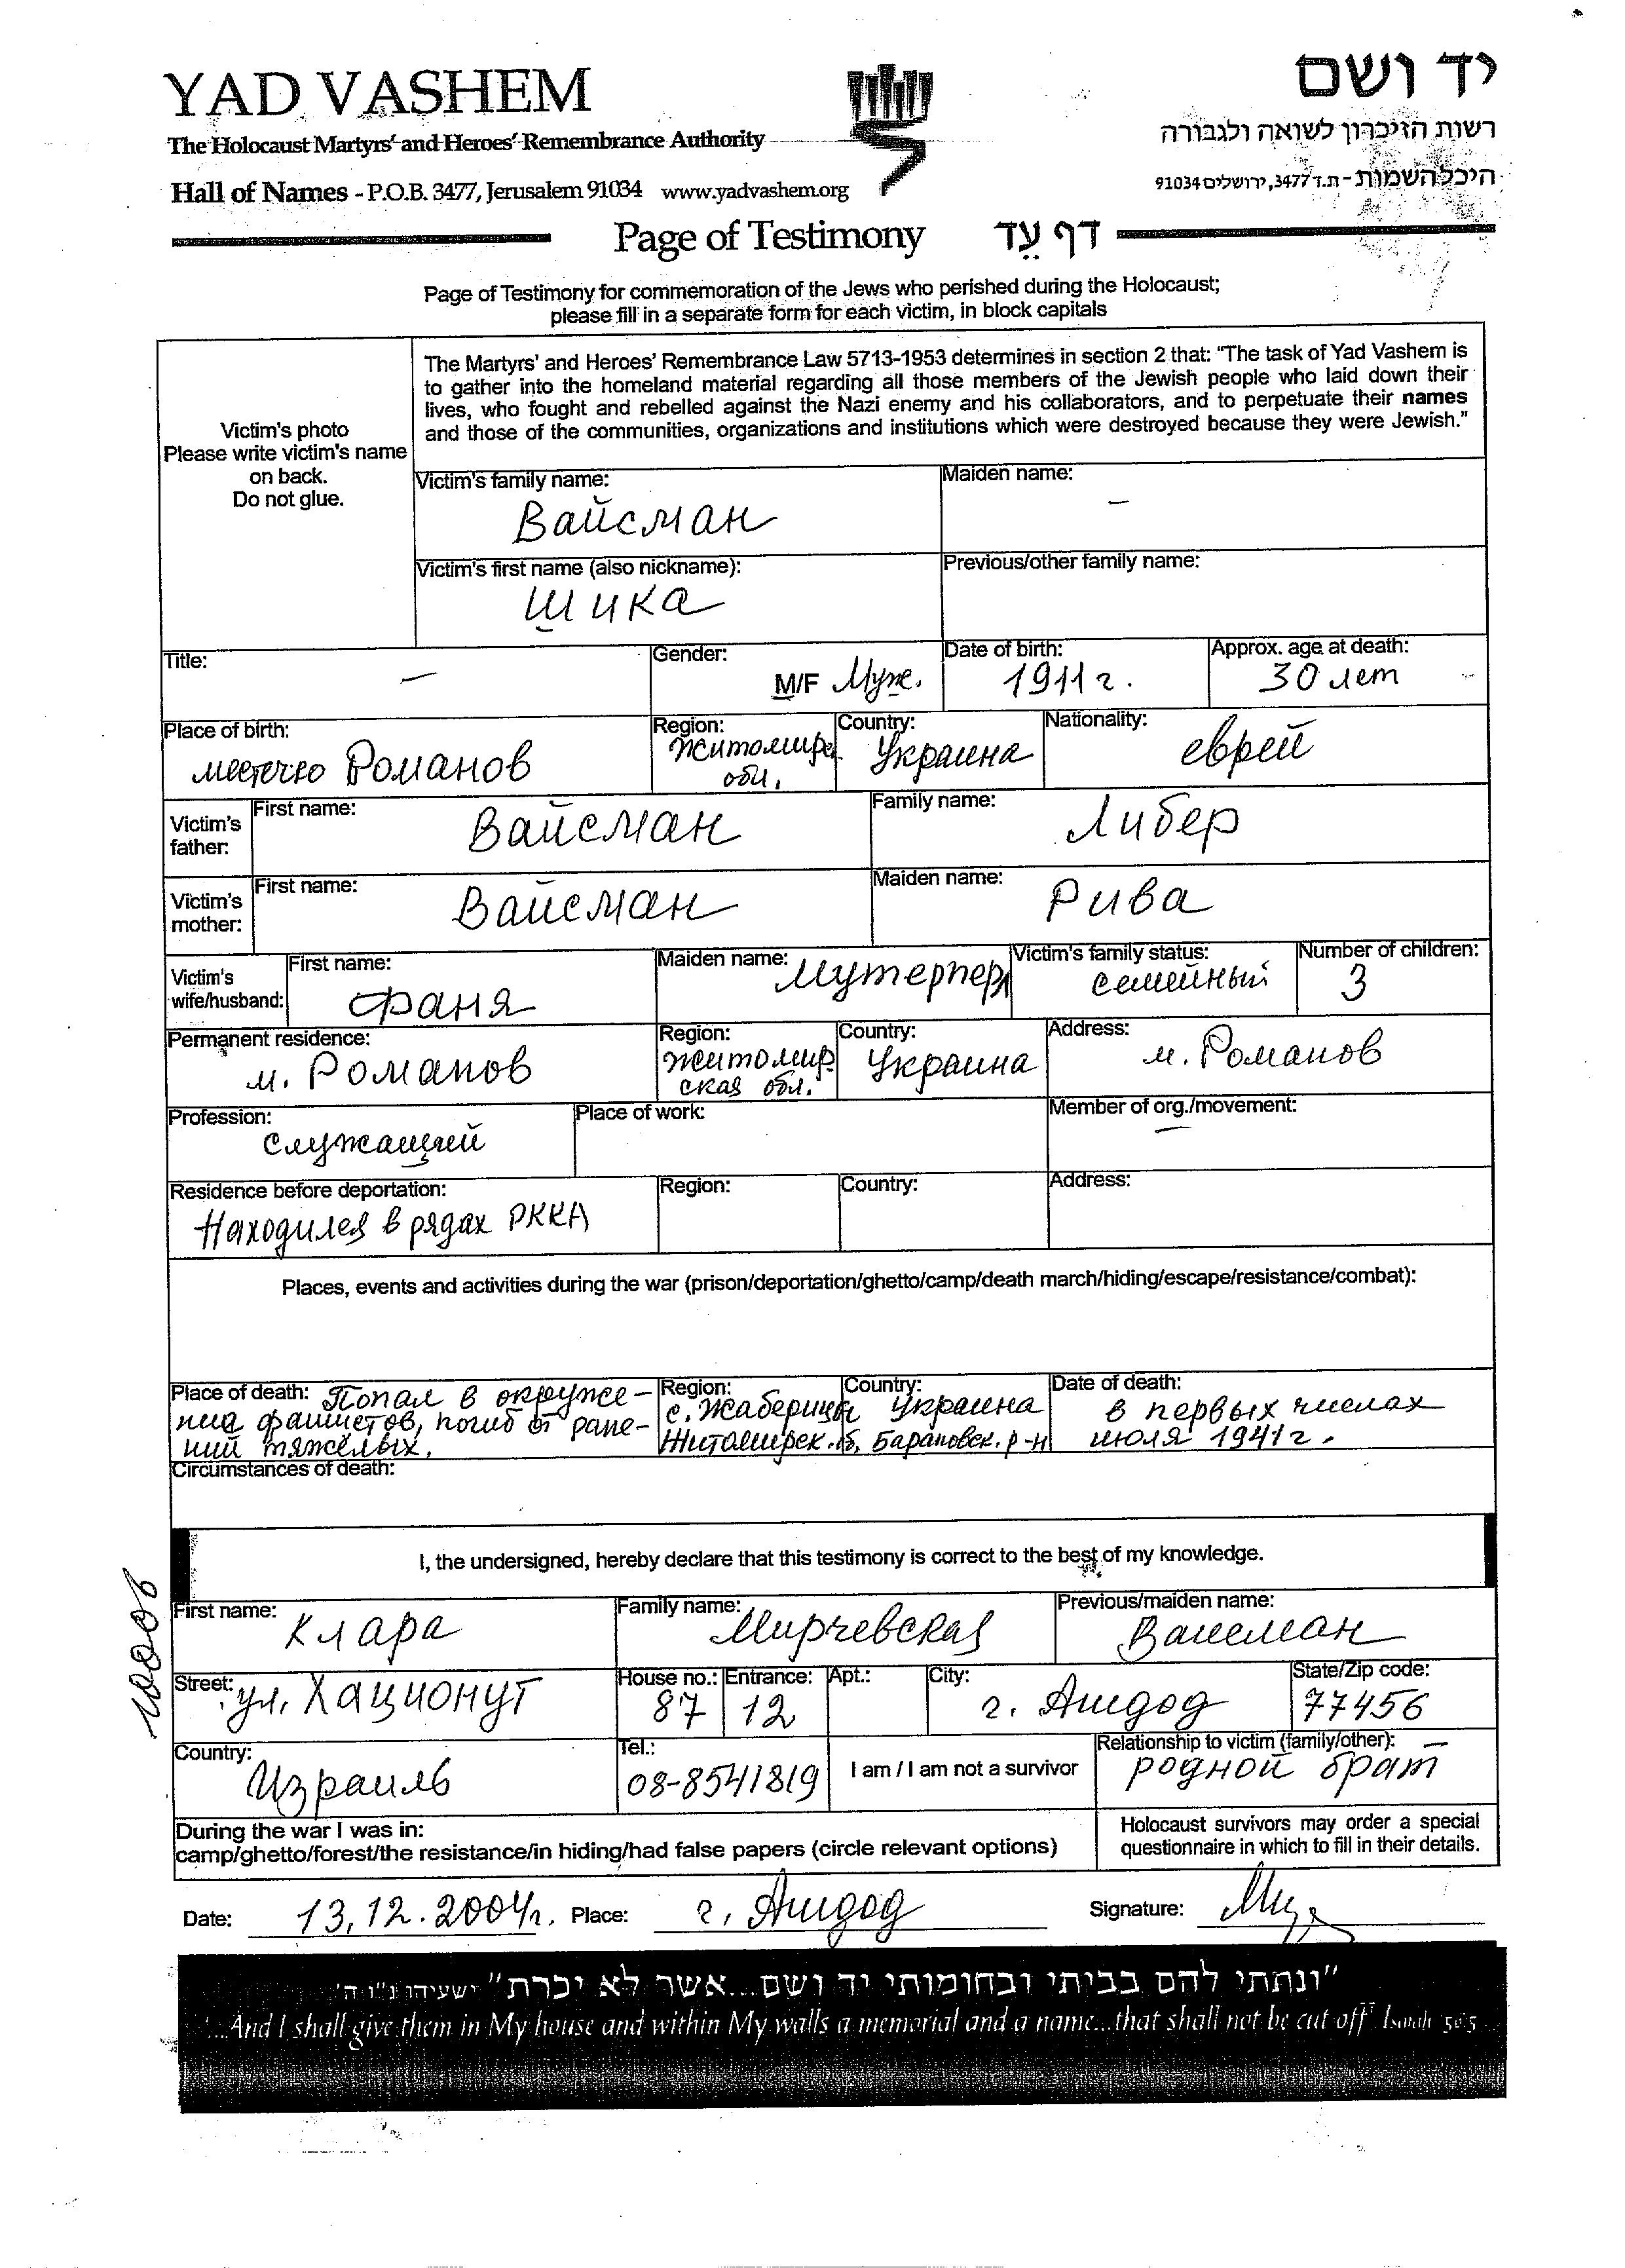 YAD VASHEM
יד ושם
The Holocaust Martyrs' and Heroes' Remembrance Authority
רשות הזיכרון לשואה ולגבורה
Hall of Names - P.O.B. 3477, Jerusalem 91034 www.yadvashem.org
היכל השמות - ת.ד 3477, ירושלים 91034
Page of Testimony דף עֵד
Page of Testimony for commemoration of the Jews who perished during the Holocaust;
please fill in a separate form for each victim, in block capitals
Victim's photo
Please write victim's name
on back.
Do not glue.
The Martyrs' and Heroes' Remembrance Law 5713-1953 determines in section 2 that: "The task of Yad Vashem is
to gather into the homeland material regarding all those members of the Jewish people who laid down their
lives, who fought and rebelled against the Nazi enemy and his collaborators, and to perpetuate their names
and those of the communities, organizations and institutions which were destroyed because they were Jewish."
Victim's family name: Maiden name:
Вайсман –
Victim's first name (also nickname): Previous/other family name:
Шика
Title: – Gender: M/F Муж. Date of birth: 1911 г. Approx. age at death: 30 лет
Place of birth: Region: Country: Nationality:
местечко Романов Житомирс. Украина еврей
обл.
Victim's father: First name: Вайсман Family name: Либер
Victim's mother: First name: Вайсман Maiden name: Рива
Victim's wife/husband: First name: Фаня Maiden name: Мутерперл Victim's family status: семейный Number of children: 3
Permanent residence: Region: Country: Address:
м. Романов Житомир Украина м. Романов
ская обл.
Profession: Place of work: Member of org./movement:
служащий –
Residence before deportation: Region: Country: Address:
Находился в рядах РККА
Places, events and activities during the war (prison/deportation/ghetto/camp/death march/hiding/escape/resistance/combat):
Place of death: Попал в окруже-
ния фашистов, погиб от ране-
ний тяжёлых.
Region: Country:
с. Жаберицы Украина
Житомирск. об, Барановск. р-н
Date of death:
в первых числах
июля 1941 г.
Circumstances of death:
I, the undersigned, hereby declare that this testimony is correct to the best of my knowledge.
First name: Клара Family name: Мирчевская Previous/maiden name: Вайсман
Street: ул. Хационут House no.: 87 Entrance: 12 Apt.: City: г. Ашдод State/Zip code: 77456
Country: Израиль Tel.: 08-8541819 I am / I am not a survivor Relationship to victim (family/other): – родной брат
During the war I was in:
camp/ghetto/forest/the resistance/in hiding/had false papers (circle relevant options)
Holocaust survivors may order a special
questionnaire in which to fill in their details.
Date: 13.12.2004г. Place: г. Ашдод Signature:
"ונתתי להם בביתי ובחומותי יד ושם...אשר לא יכרת" ישעיהו נ"ו ה'
...And I shall give them in My house and within My walls a memorial and a name...that shall not be cut off" Isaiah 56:5